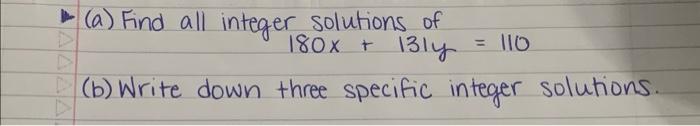 (a) Find all integer solutions of
180x + 131y = 110
(b) Write down three specific integer solutions.